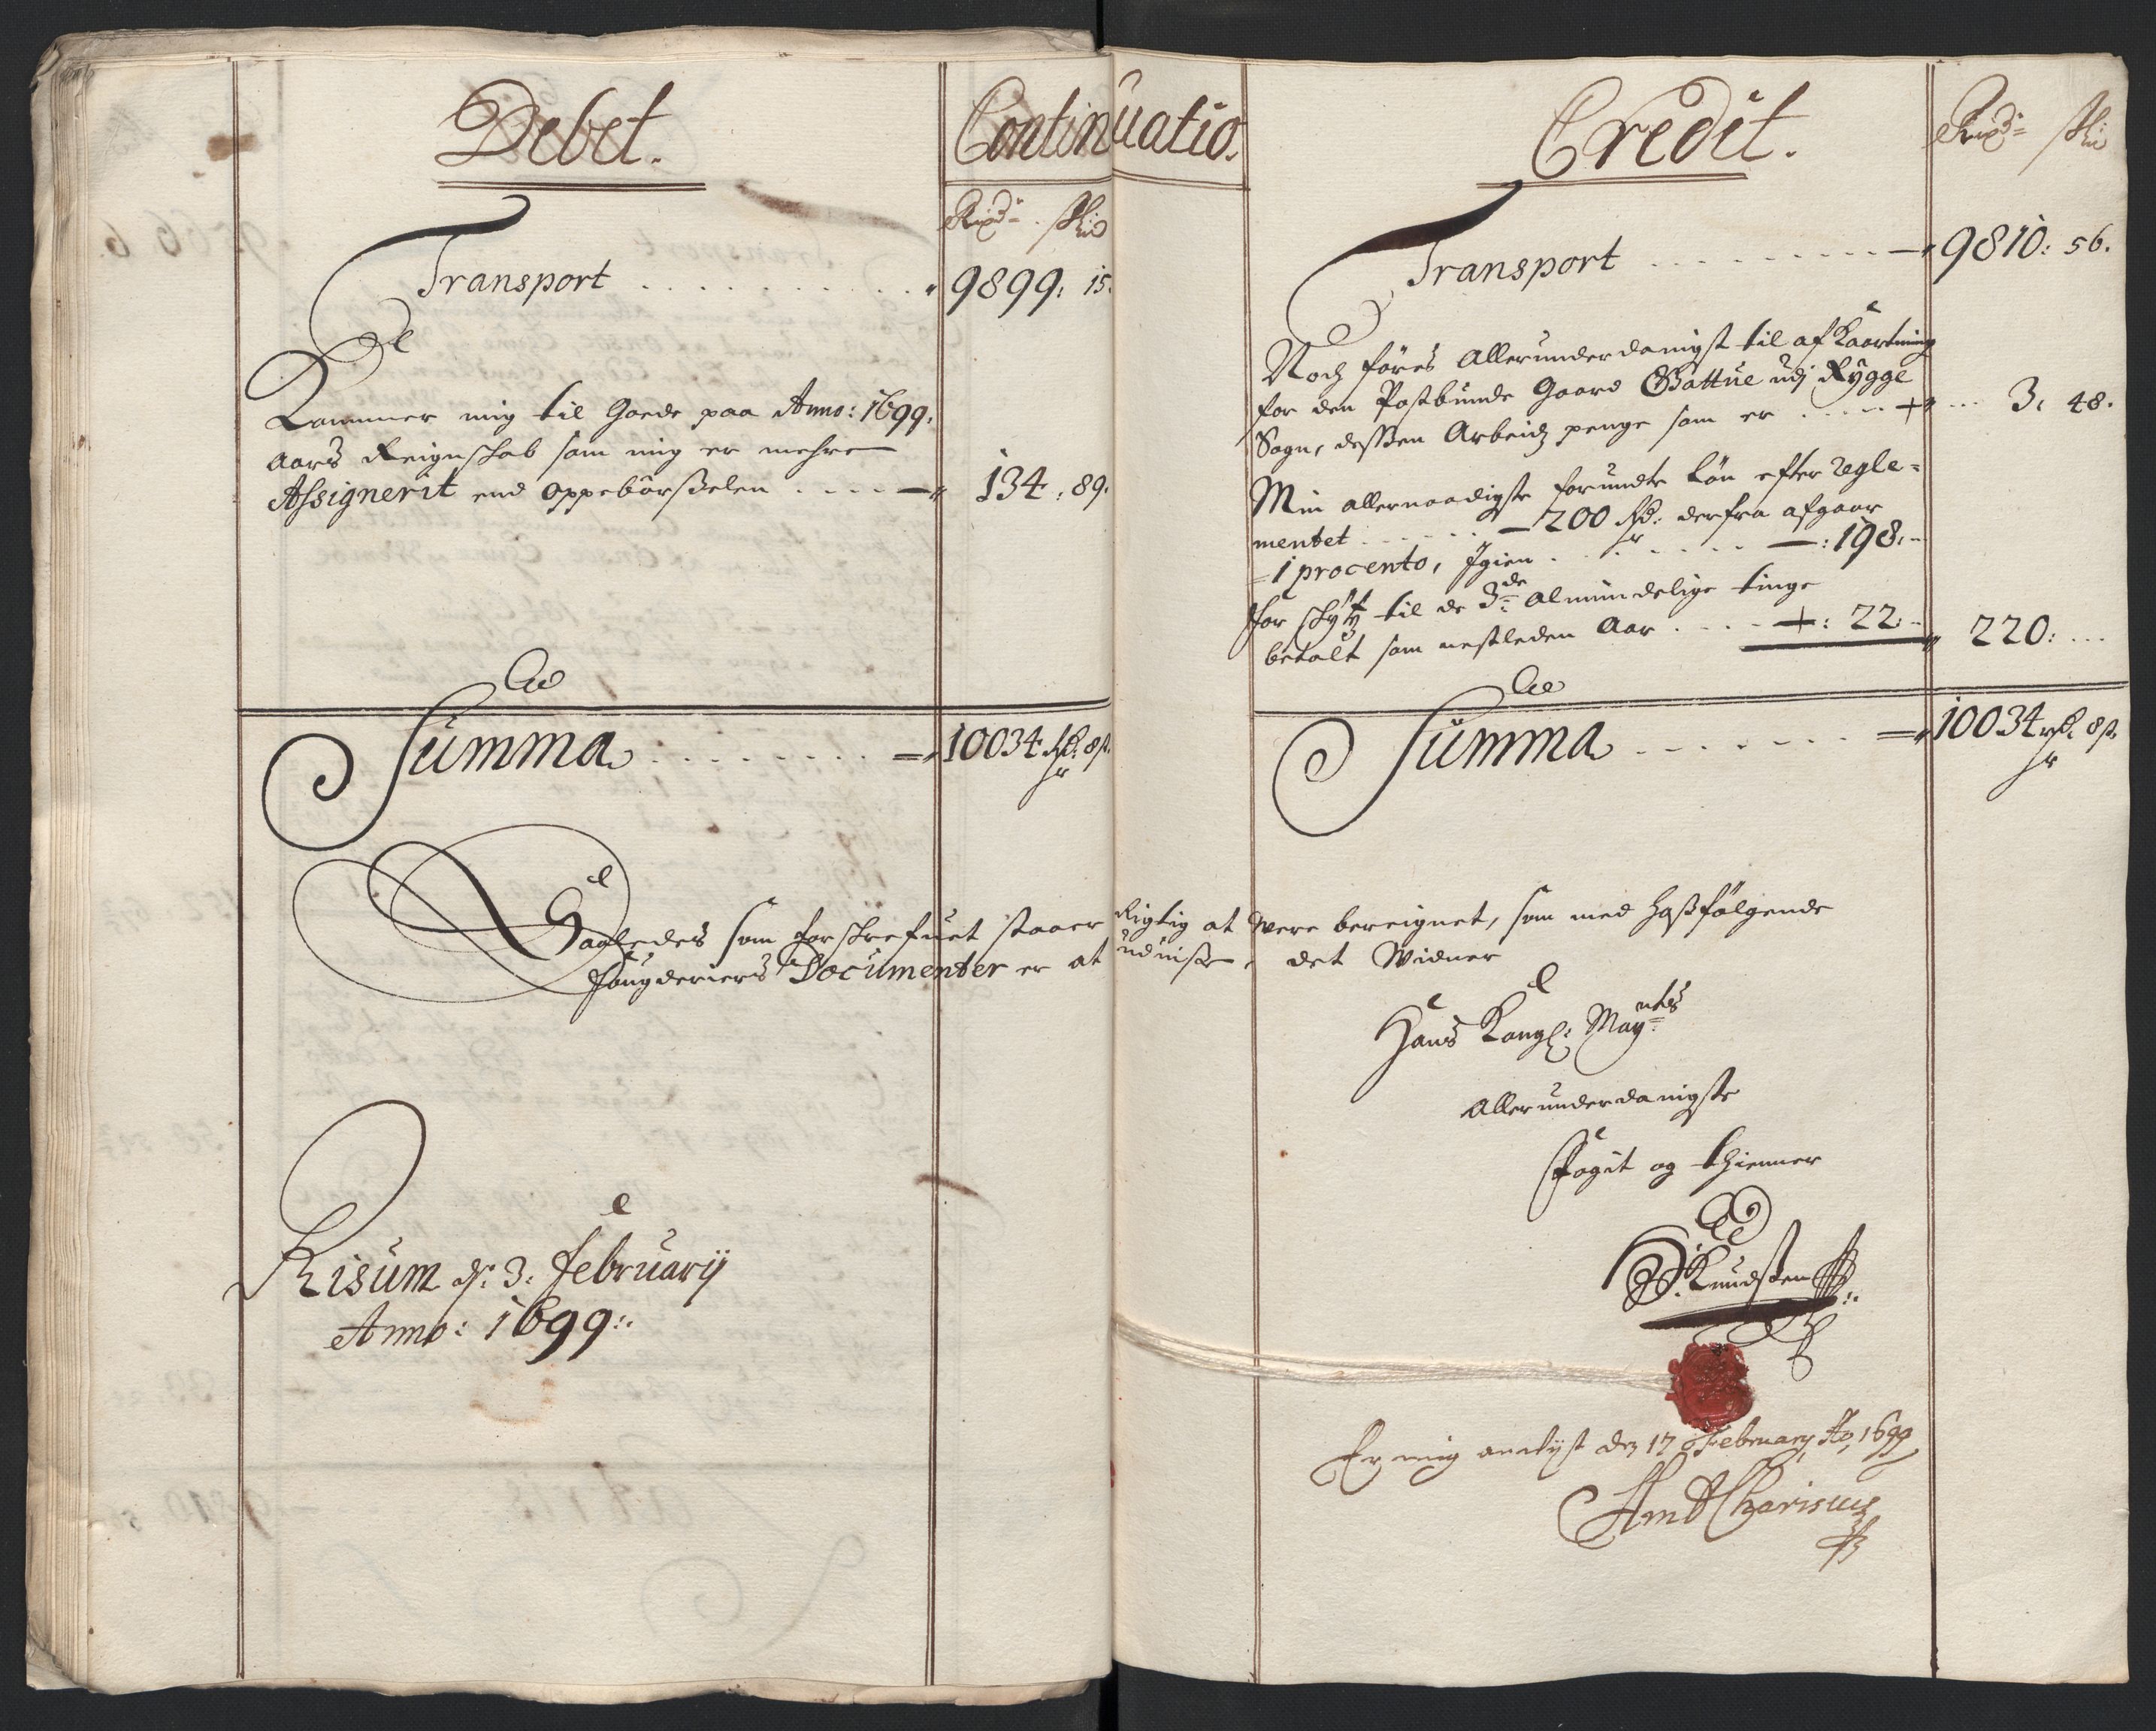 Debet.
Continuatio.
Rixdr. skil
Transport . . . . . . . . . . . 9899: 15.
Kommer mig til Goede paa Anno: 1699.
Aars Reignskab som mig er mehre
Assignerit end oppebörsselen . . . . — 134: 89.
Summa . . . . . . . . = 10034 Rdr. 8 s.
Credit.
Rixdr. skil
Transport . . . . . . . . . — 9810: 56.
Noch föres Allerunderdanigst til afkaartning
for den Postbunde Gaard Gattue udj Rygge
Sogn, dessen Arbeidz penge som er . . . . . 3. 48.
Min allernaadigste forundte Lön efter Regle=
mentet . . . . . . — 200 Rdr. derfra afgaar
1 procento, Igien . . . . . . . . — : 198. -
for skytz til de 3de Almindelige tinge
betalt som nestleden Aar . . . . : 22. - 220: ...
Summa . . . . . . . = 10034 rdr. 8 s.
Saaledes som forskrefuet staaer Rigtig at Were bereignet, som med hossfölgende
fougderiers Documenter er at udvise, det Widner
Hans Kongl: Mayntes
Allerunderdanigste
Fogit og thienner
Knudssen
Risum dn: 3: februarij
Anno: 1699:.
Er mig andtyst den 17 February Ao 1699
Amb Charisius